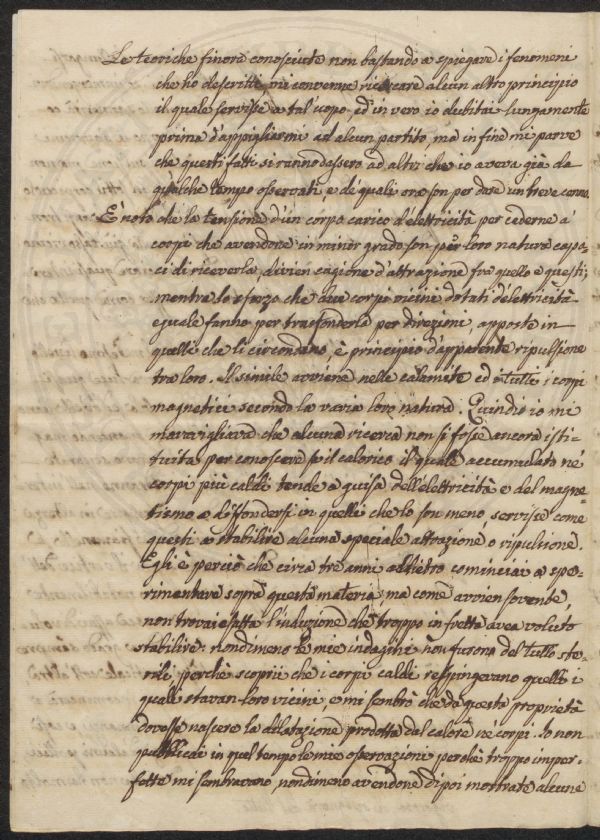 Le teoriche finora conosciute non bastando a spiegare i fenomeni
che ho descritti, mi convenne ricercare alcun altro principio
il quale servisse a tal uopo, ed in vero io dubitai lungamente
prima d'appigliarmi ad alcun partito, ma in fine mi parve
che questi fatti si rannodassero ad altri che io aveva già da
qualche tempo osservati, e de' quali ora son per dare un breve cenno.
È noto che la tensione d'un corpo carico d'elettricità per cederne a'
corpi che avendone in minor grado son per loro natura capa-
ci di riceverla, divien cagione d'attrazione fra quello e questi;
mentre lo sforzo che due corpi vicini dotati d'elettricità
eguale fanno per trasfonderla per direzioni, apposte in
quelli che li circondano, è principio d'apparente ripulsione
tra loro. Il simile avviene nelle calamite ed a tutti i corpi
magnetici secondo la varia loro natura. Quindi io mi
maravigliava che alcuna ricerca non si fosse ancora isti-
tuita per conoscere se il calorico il quale accumulato ne'
corpi più caldi tende a guisa dell'elettricità e del magne-
tismo a diffondersi in quelli che lo son meno, servisse come
questi a stabilire alcuna speciale attrazione, o ripulsione.
Egli è perciò che circa tre anni addietro cominciai a spe-
rimentare sopra questa materia, ma come avvien sovente,
non trovai esatta l'induzione che troppo in fretta avea voluto
stabilire: nondimeno le mie indagini non furono del tutto ste-
rili, perchè scoprii che i corpi caldi respingevano quelli i
quali stavan loro vicini e mi sembrò che da questa proprietà
dovesse nascere la dilatazione prodotta dal calore ne' corpi. Io non
pubblicai in quel tempo le mie osservazioni perchè troppo imper-
fette mi sembravano, nondimeno avendone dipoi mostrate alcune